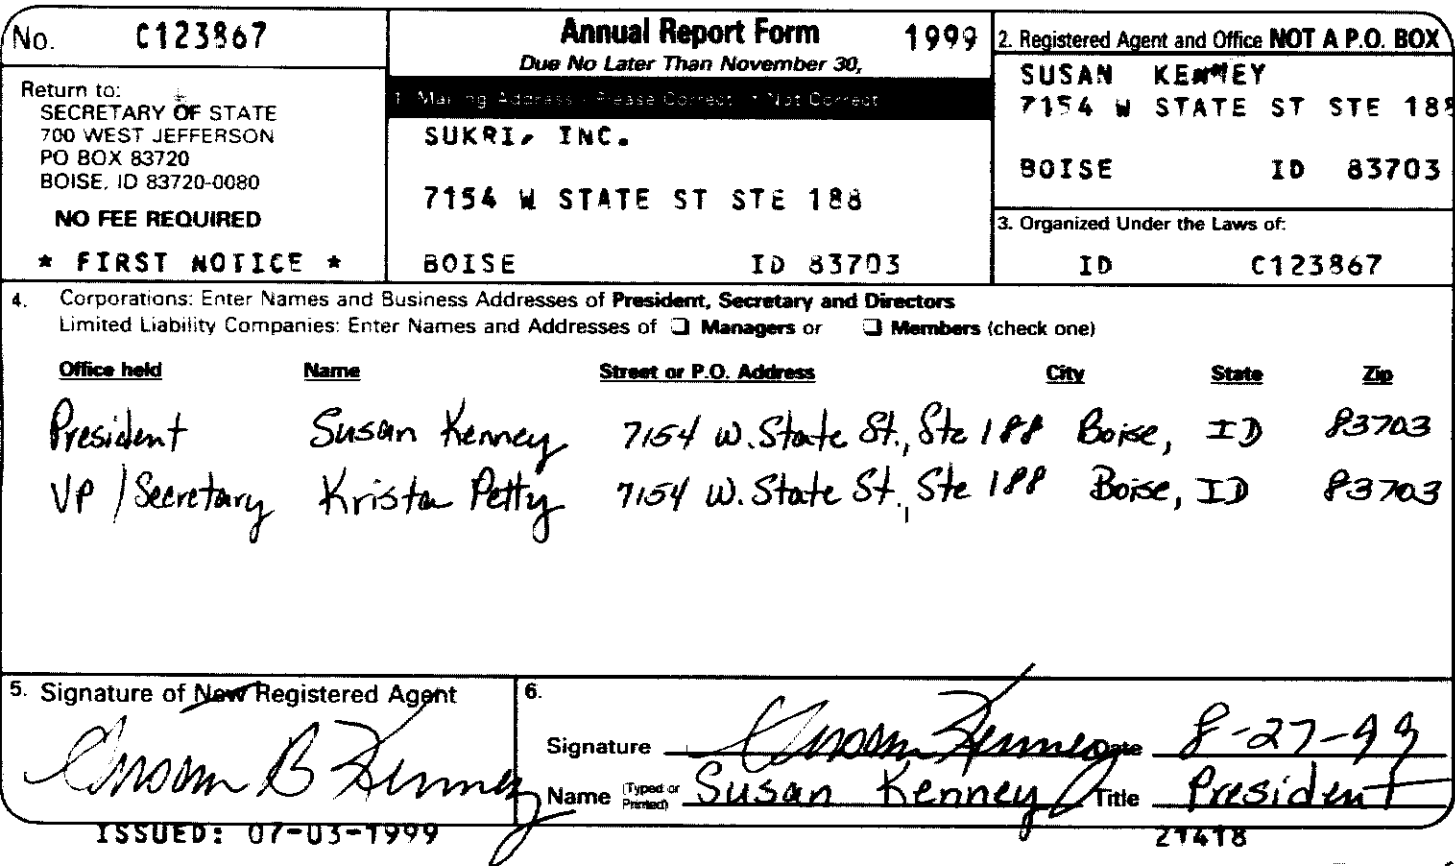 No. C123867
Annual Report Form 1999
Due No Later Than November 30,
Return to:
SECRETARY OF STATE
700 WEST JEFFERSON
PO BOX 83720
BOISE, ID 83720-0080
NO FEE REQUIRED
* FIRST NOTICE *
1. Mailing Address - Please Correct If Not Correct
SUKRI, INC.
7154 W STATE ST STE 188
BOISE ID 83703
2. Registered Agent and Office NOT A P.O. BOX
SUSAN KENNEY
7154 W STATE ST STE 188
BOISE ID 83703
3. Organized Under the Laws of:
ID C123867
4. Corporations: Enter Names and Business Addresses of President, Secretary and Directors
Limited Liability Companies: Enter Names and Addresses of ❑ Managers or ❑ Members (check one)
Office held Name Street or P.O. Address City State Zip
President Susan Kenney 7154 W. State St., Ste 188 Boise, ID 83703
VP / Secretary Krista Petty 7154 W. State St., Ste 188 Boise, ID 83703
5. Signature of New Registered Agent
Susan B Kenney
6.
Signature Susan Kenney Date 8-27-99
Name (Typed or Printed) Susan Kenney Title President
ISSUED: 07-03-1999
21418